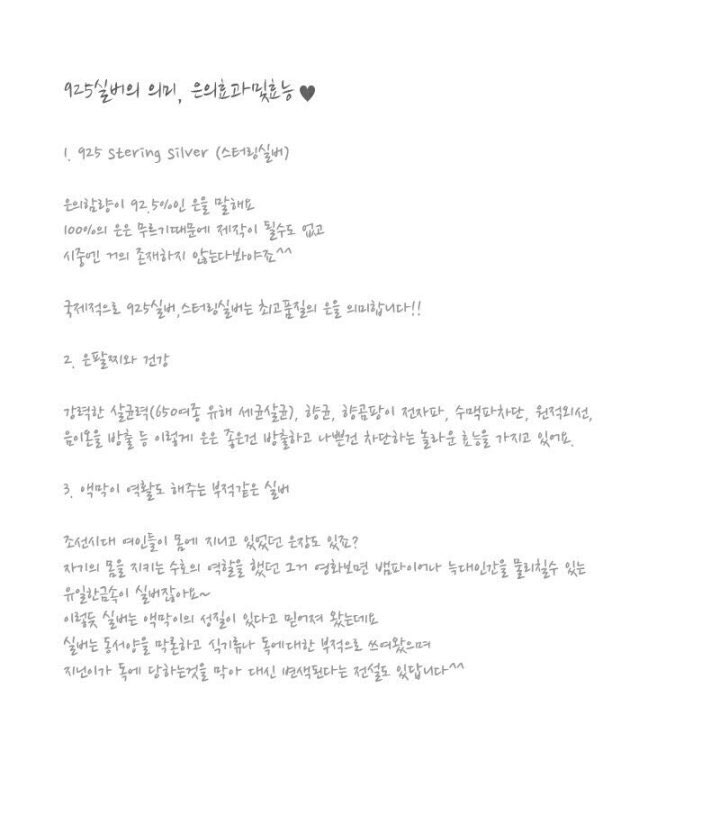 925실버의 의미, 은의효과및효능 ♥
1. 925 Stering Silver (스터링실버)
은의함량이 92.5%인 은을 말해요
100%의 은은 무르기때문에 제작이 될수도 없고
시중엔 거의 존재하지 않는다봐야죠^^
국제적으로 925실버,스터링실버는 최고품질의 은을 의미합니다!!
2. 은팔찌와 건강
강력한 살균력(650여종 유해 세균살균), 향균, 향곰팡이 전자파, 수맥파차단, 원적외선,
음이온을 방출 등 이렇게 은은 좋은건 방출하고 나쁜건 차단하는 놀라운 효능을 가지고 있어요.
3. 액막이 역활도 해주는 부적같은 실버
조선시대 여인들이 몸에 지니고 있었던 은장도 있죠?
자기의 몸을 지키는 수호의 역할을 했던 그거 영화보면 뱀파이어나 늑대인간을 물리칠수 있는
유일한금속이 실버잖아요~
이렇듯 실버는 액막이의 성질이 있다고 믿어져 왔는데요
실버는 동서양을 막론하고 식기류나 독에대한 부적으로 쓰여왔으며
지닌이가 독에 당하는것을 막아 대신 변색된다는 전설도 있답니다^^